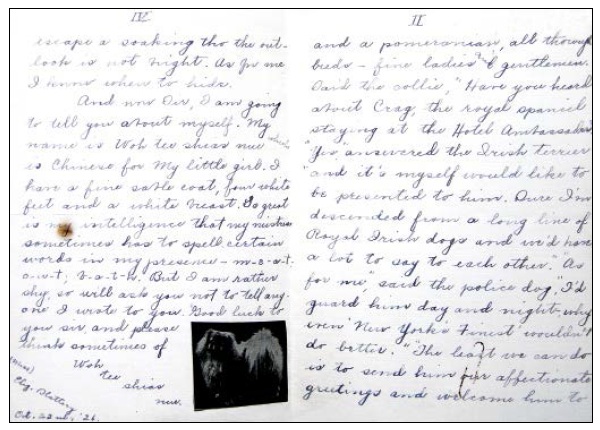 II
and a pomeranian, all thorough
breds – fine ladies and gentlemen.
Said the collie, "Have you heard
about Crag, the royal spaniel
staying at the Hotel Ambassador"
"Yis," answered the Irish terrier
"and it's myself would like to
be presented to him. Sure I'm
descended from a long line of
Royal Irish dogs and we'd have
a lot to say to each other." "As
for me," said the police dog, I'd
guard him day and night – why
even New York's Finest wouldn't
do better." "The least we can do
is to send him our affectionate
greetings and welcome him to
IV
escape a soaking tho the out-
look is not bright. As for me
I know when to hide.
And now Sir, I am going
to tell you about myself. My
name is Woh tee shiao nue which
is Chinese for My little girl. I
have a fine sable coat, four white
feet and a white breast. So great
is my intelligence that my mistress
sometimes has to spell certain
words in my presence – m-e-a-t;
o-u-t; b-a-t-h. But I am rather
shy, so will ask you not to tell any-
one I wrote to you. Good luck to
you sir, and please
think sometimes of
Woh
tee
shiao
nue.
(Miss)
Oct. 22nd, '26.